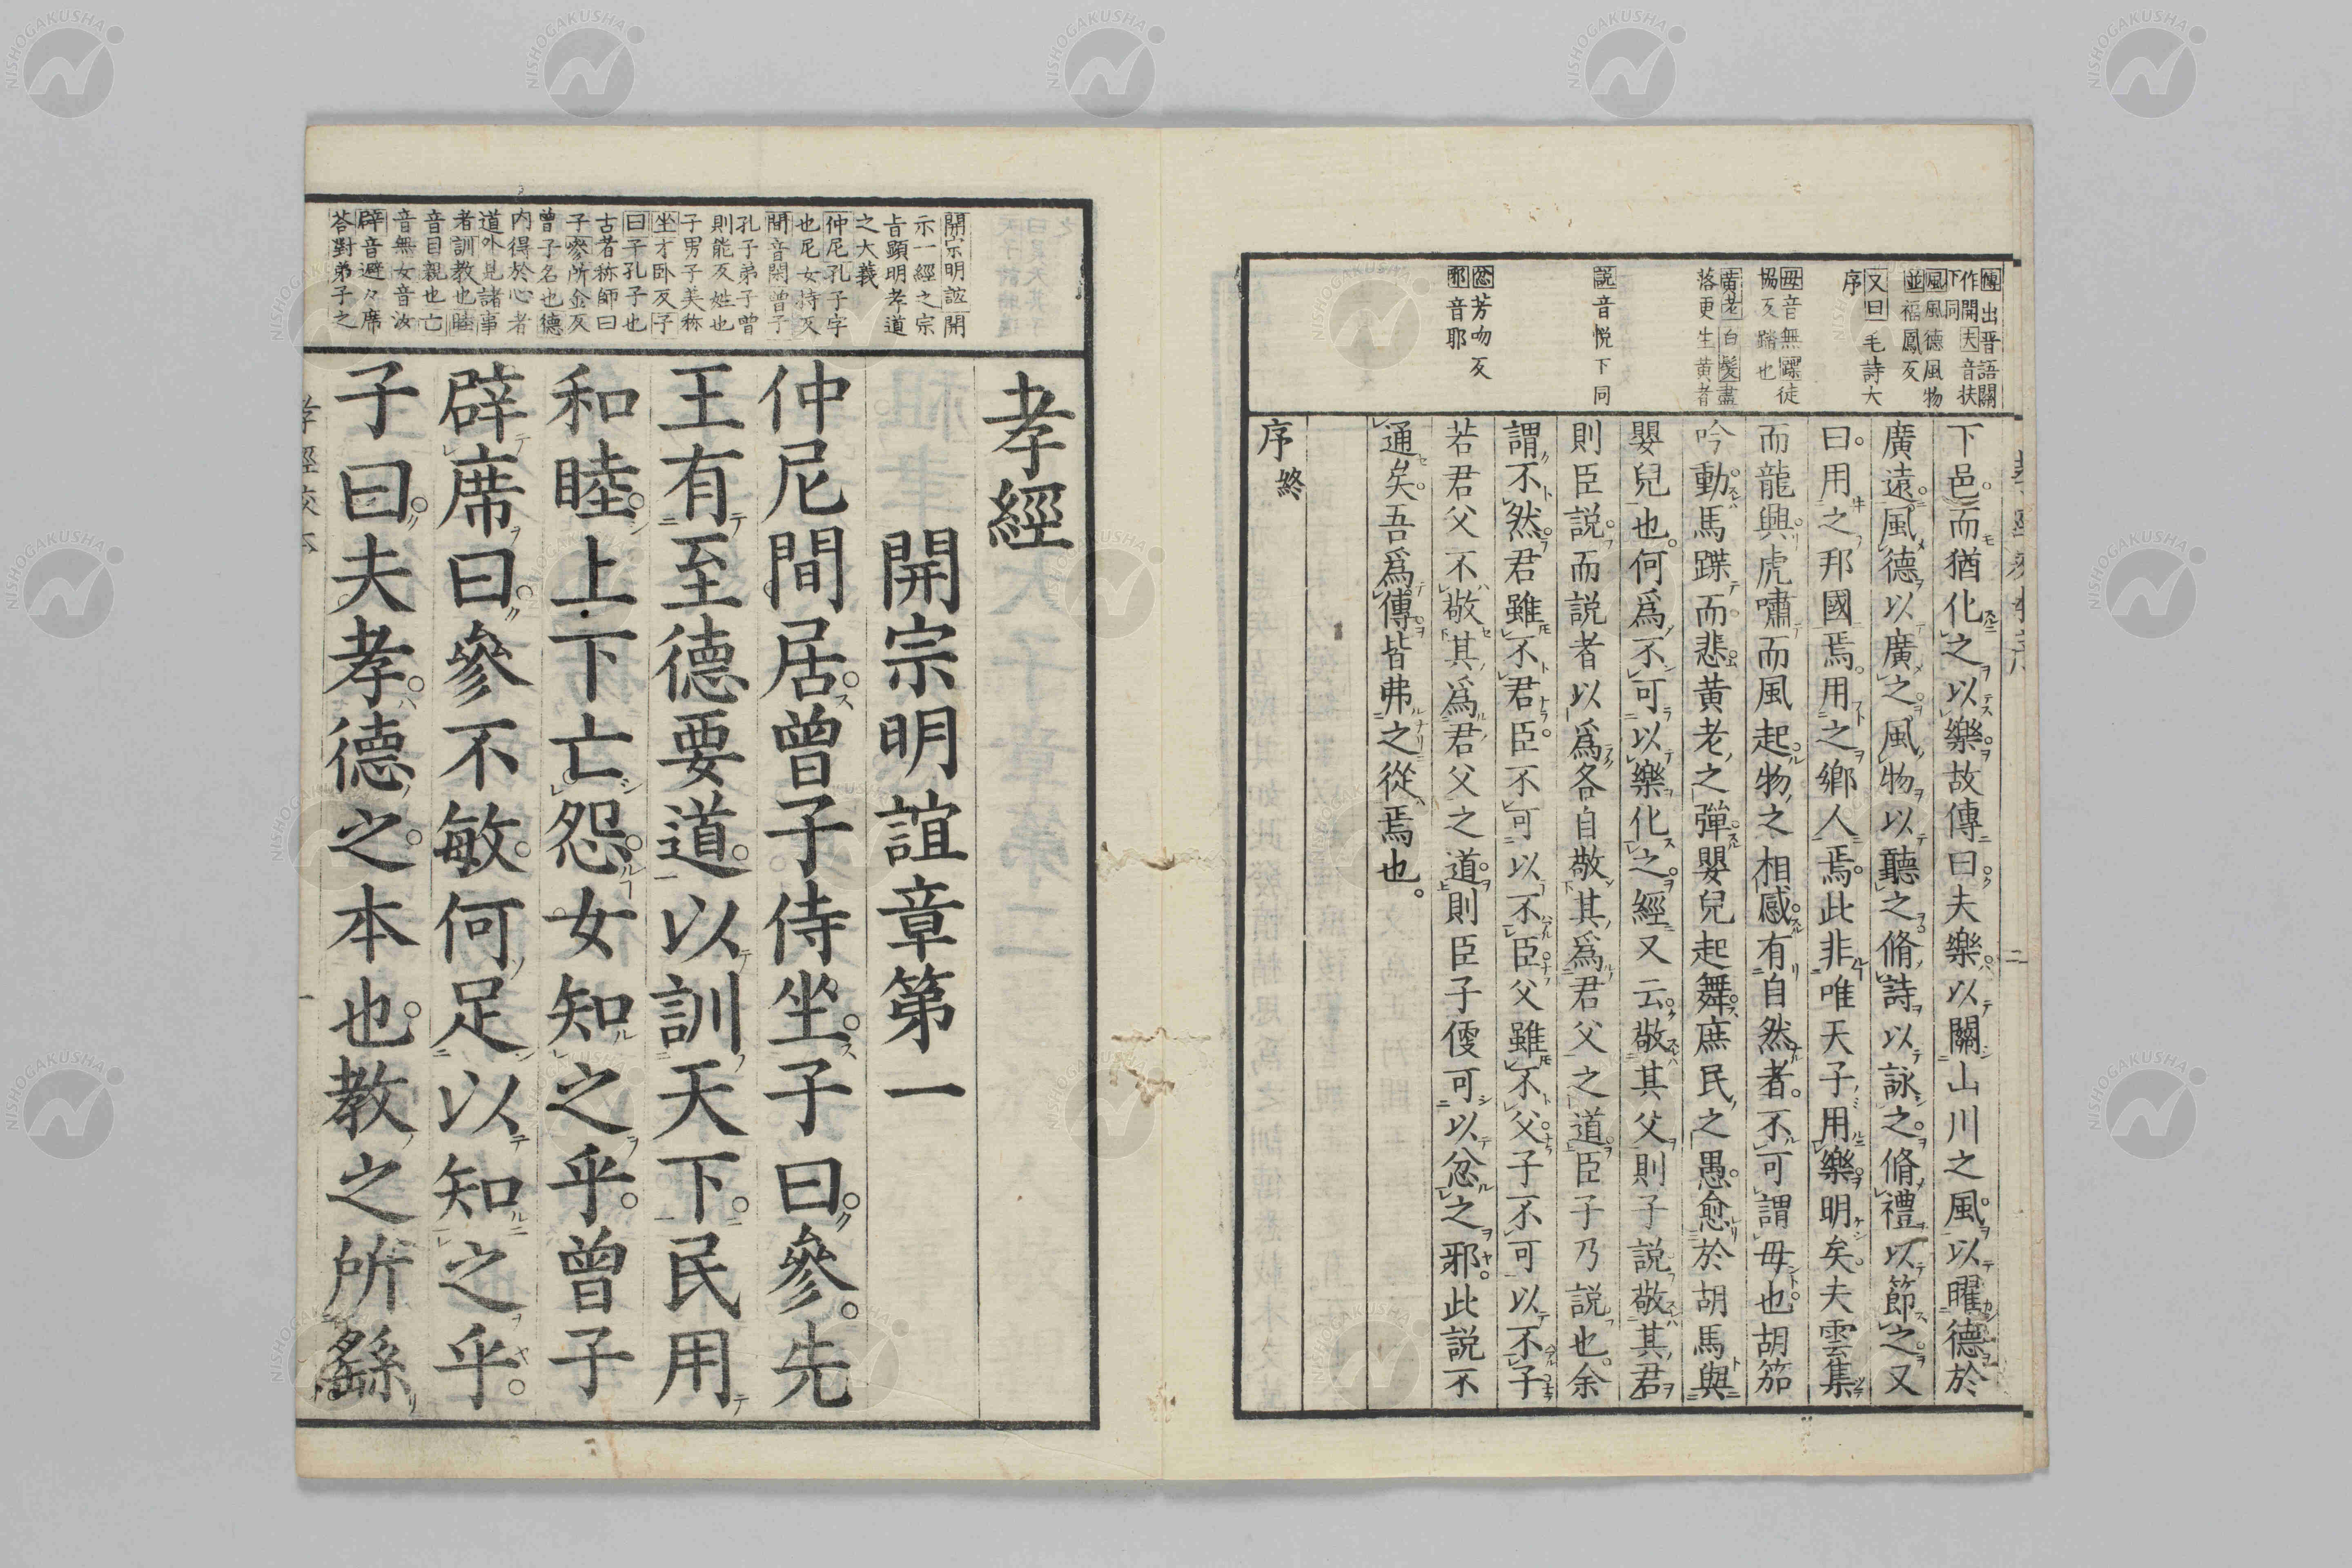 傳出晋語關
作開夫音扶
下同
風風德風物
並福鳳反
又曰毛詩大
序
毋音無蹀徒
協反踏也
黄老白髮盡
落更生黄者
説音悦下同
忿芳吻反
耶音耶
下邑而猶化之以樂故傳曰夫樂以關山川之風以曜德於
廣遠風德以廣之風物以聽之脩詩以詠之脩禮以節之又
曰用之邦國焉用之鄉人焉此非唯天子用樂明矣夫雲集
而龍興虎嘯而風起物之相感有自然者不可謂毋也胡笳
吟動馬蹀而悲黄老之彈嬰兒起舞庶民之愚愈於胡馬與
嬰兒也何爲不可以樂化之經又云敬其父則子説敬其君
則臣説而説者以爲各自敬其爲君父之道臣子乃説也余
謂不然君雖不君臣不可以不臣父雖不父子不可以不子
若君父不敬其爲君父之道則臣子便可以忿之邪此説不
通矣吾爲傳皆弗之從焉也
序終
開宗明誼開
示一經之宗
㫖顯明孝道
之大義
仲尼孔子字
也尼女持反
間音閑曾子
孔子弟子曾
則能反姓也
子男子美称
坐才卧反子
曰子孔子也
古者称師曰
子參所金反
曾子名也德
内得於心者
道外見諸事
者訓教也睦
音目親也亡
音無女音汝
辟音避々席
荅對弟子之
孝經
開宗明誼章第一
仲尼間居曾子侍坐子曰參先
王有至德要道以訓天下民用
和睦上下亡怨女知之乎曾子
辟席曰參不敏何足以知之乎
子曰夫孝德之本也教之所繇
NISHOGAKUSHA